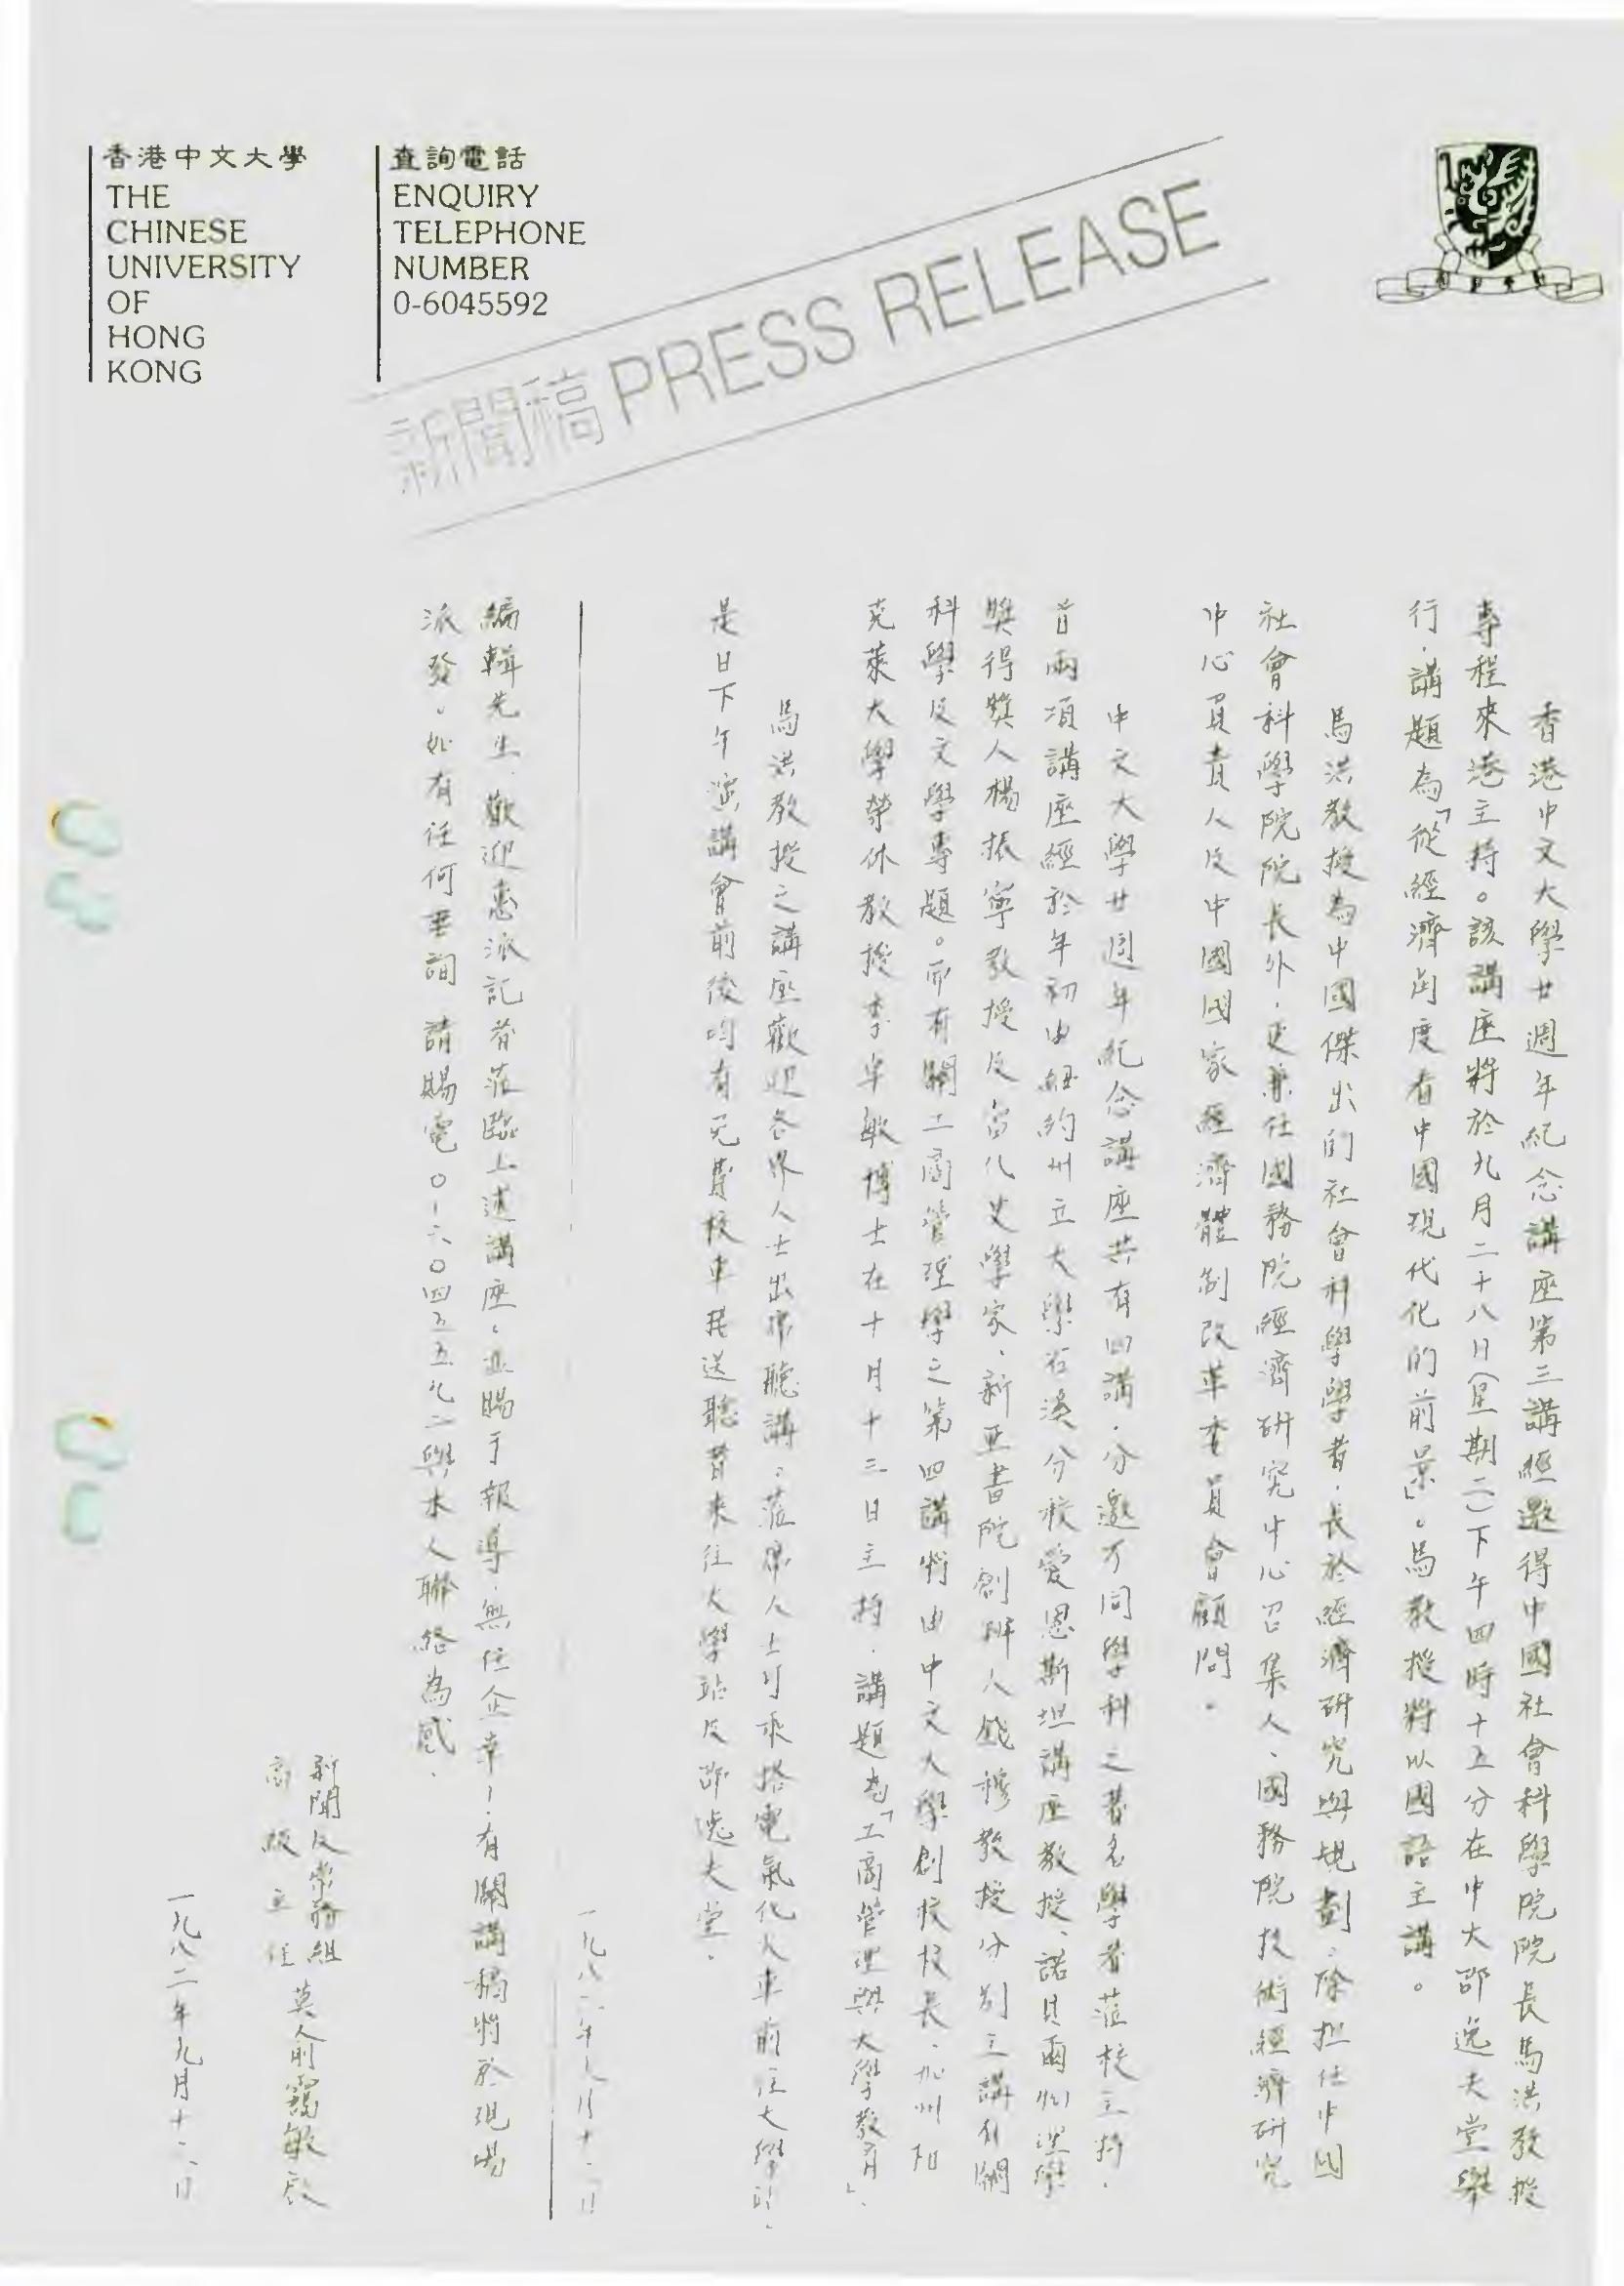 香港中文大學
THE
CHINESE
UNIVERSITY
OF
HONG
KONG
查詢電話
ENQUIRY
TELEPHONE
NUMBER
0-6045592
新聞稿 PRESS RELEASE
香港中文大學廿週年紀念講座第三講經邀得中國社會科學院院長馬洪教授
專程來港主持。該講座將於九月二十八日(星期二)下午四時十五分在中大邵逸夫堂舉
行.講題為「從經濟角度看中國現代化的前景」。馬教授將以國語主講。
馬洪教授為中國傑出的社會科學學者.長於經濟研究與規劃.除担任中國
社會科學院院長外.更兼任國務院經濟研究中心召集人、國務院技術經濟研究
中心負責人及中國國家經濟體制改革委員會顧問.
中文大學廿週年紀念講座共有四講.分邀不同學科之著名學者蒞校主持.
首兩項講座經於年初由紐約州立大學石溪分校愛恩斯坦講座教授、諾貝爾物理學
獎得獎人楊振寧教授及當代史學家、新亞書院創辦人錢穆教授分別主講有關
科學及文學專題。而有關工商管理學之第四講將由中文大學創校校長、加州柏
克萊大學榮休教授李卓敏博士在十月十三日主持.講題為「工商管理與大學教育」.
馬洪教授之講座歡迎各界人士出席聽講。蒞席人士可乘搭電氣化火車前往大學站.
是日下午演講會前後均有免費校車接送聽者來往大學站及邵逸夫堂.
一九八二年九月十一日
編輯先生.歡迎惠派記者蒞臨上述講座.並賜予報導.無任企幸!.有關講稿將於現場
派發.如有任何垂詢.請賜電〇-六〇四五五九二與本人聯絡為感.
新聞及常務組
高級主任 莫俞靄敏啟
一九八二年九月十一日